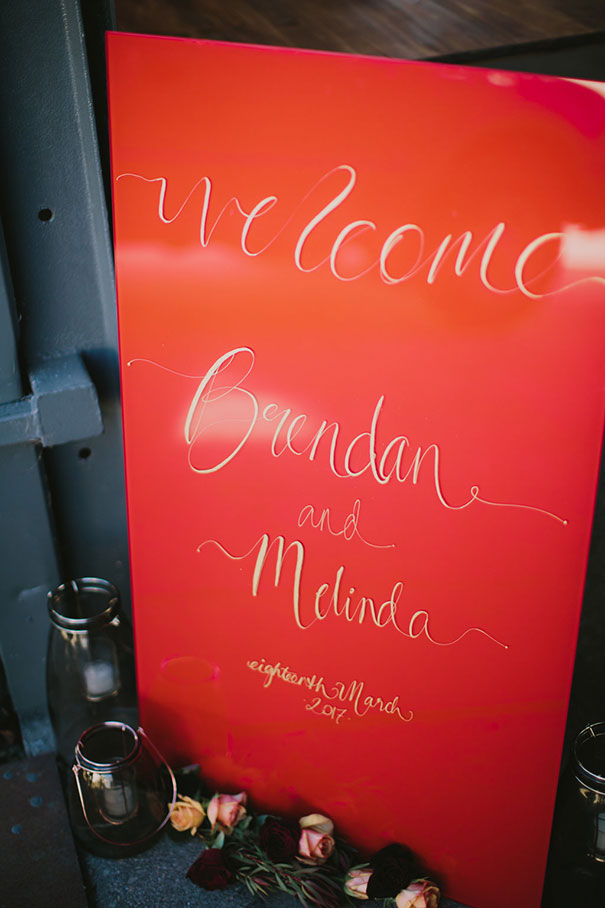 welcome
Brendan
and
Melinda
eighteenth March
2017.